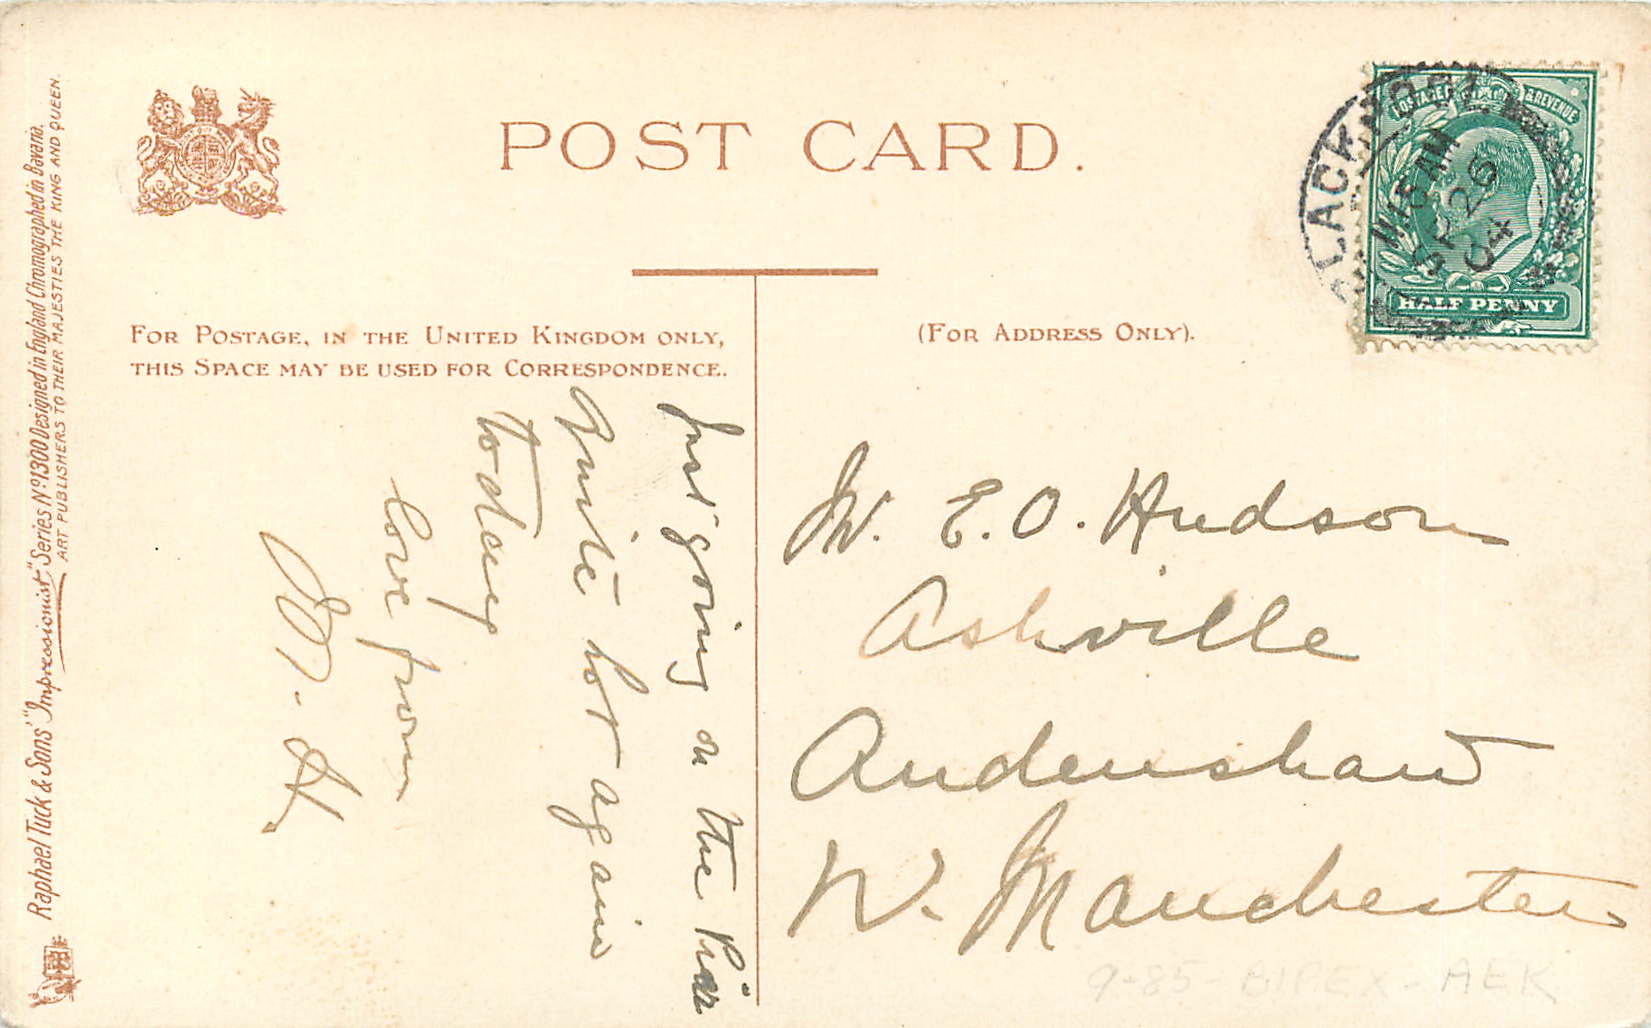 POST CARD.
FOR POSTAGE, IN THE UNITED KINGDOM ONLY,
THIS SPACE MAY BE USED FOR CORRESPONDENCE.
(FOR ADDRESS ONLY).
POSTAGE & REVENUE
HALF PENNY
BLACKPOOL
11.15 AM
SP 26
04
Just going on the Pier
quite hot again
today
love from
M. H.
E. O. Hudson
Ashville
Audenshaw
Nr. Manchester
9-85- BIPEX - AEK
Raphael Tuck & Sons' "Impressionist" Series Nº 1300 Designed in England Chromographed in Bavaria.
ART PUBLISHERS TO THEIR MAJESTIES THE KING AND QUEEN.